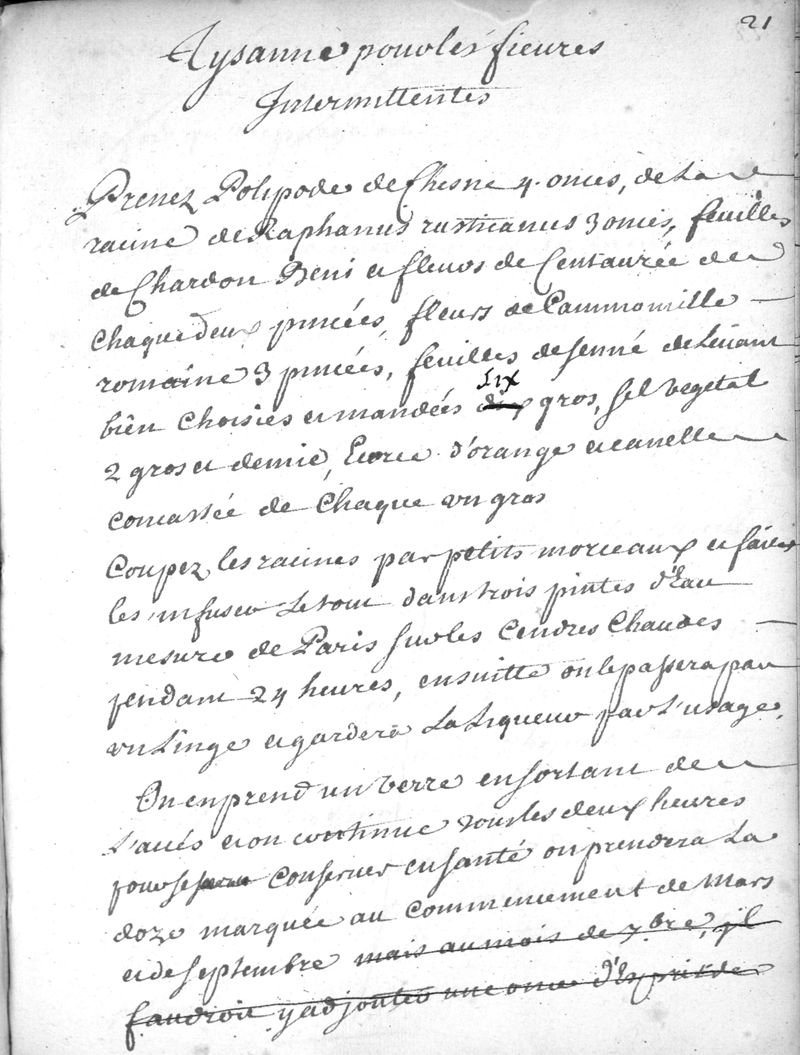 21
Tysanne pour les fieures
Intermittentes
Prenez Polipode de Chesne 4. onces, de La
racine de Raphanus rusticanus 3 onces, feuilles
de Chardon Beni et fleurs de Centaurée de
chaque deux pincées, fleurs de Cammomille
romaine 3 pincées, feuilles de senné de Leuant
bien choisies et mandées six gros, sel vegetal
2 gros et demie, Ecorce d'orange et canelle
concassée de chaque un gros
Coupez les racines par petits morceaux et faites
les infuser Le tout dans trois pintes d'Eau
mesure de Paris sur les Cendres Chaudes
pendant 24 heures, ensuitte on le passera par
un Linge et gardera La Liqueur pour L'usage.
On en prend un verre en sortant de
L'accés et on continue tous les deux heures
pour se conserver en santé on prendera La
doze marquée au commencement de Mars
et de septembre mais au mois de 7bre, il
faudroit y adjouter une once d'Esprit de